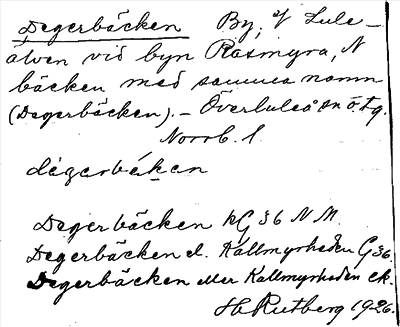 Degerbäcken By, i/ Lule-
älven vid byn Rasmyra, N
bäcken med samma namn
(Degerbäcken). – Överluleå sn ö. tg.
Norrb. l.
dégarbékan
Degerbäcken kG 36 N M.
Degerbäcken el. Källmyrheden G 36.
Degerbäcken eller Kallmyrheden ek.
H Rutberg 1926.